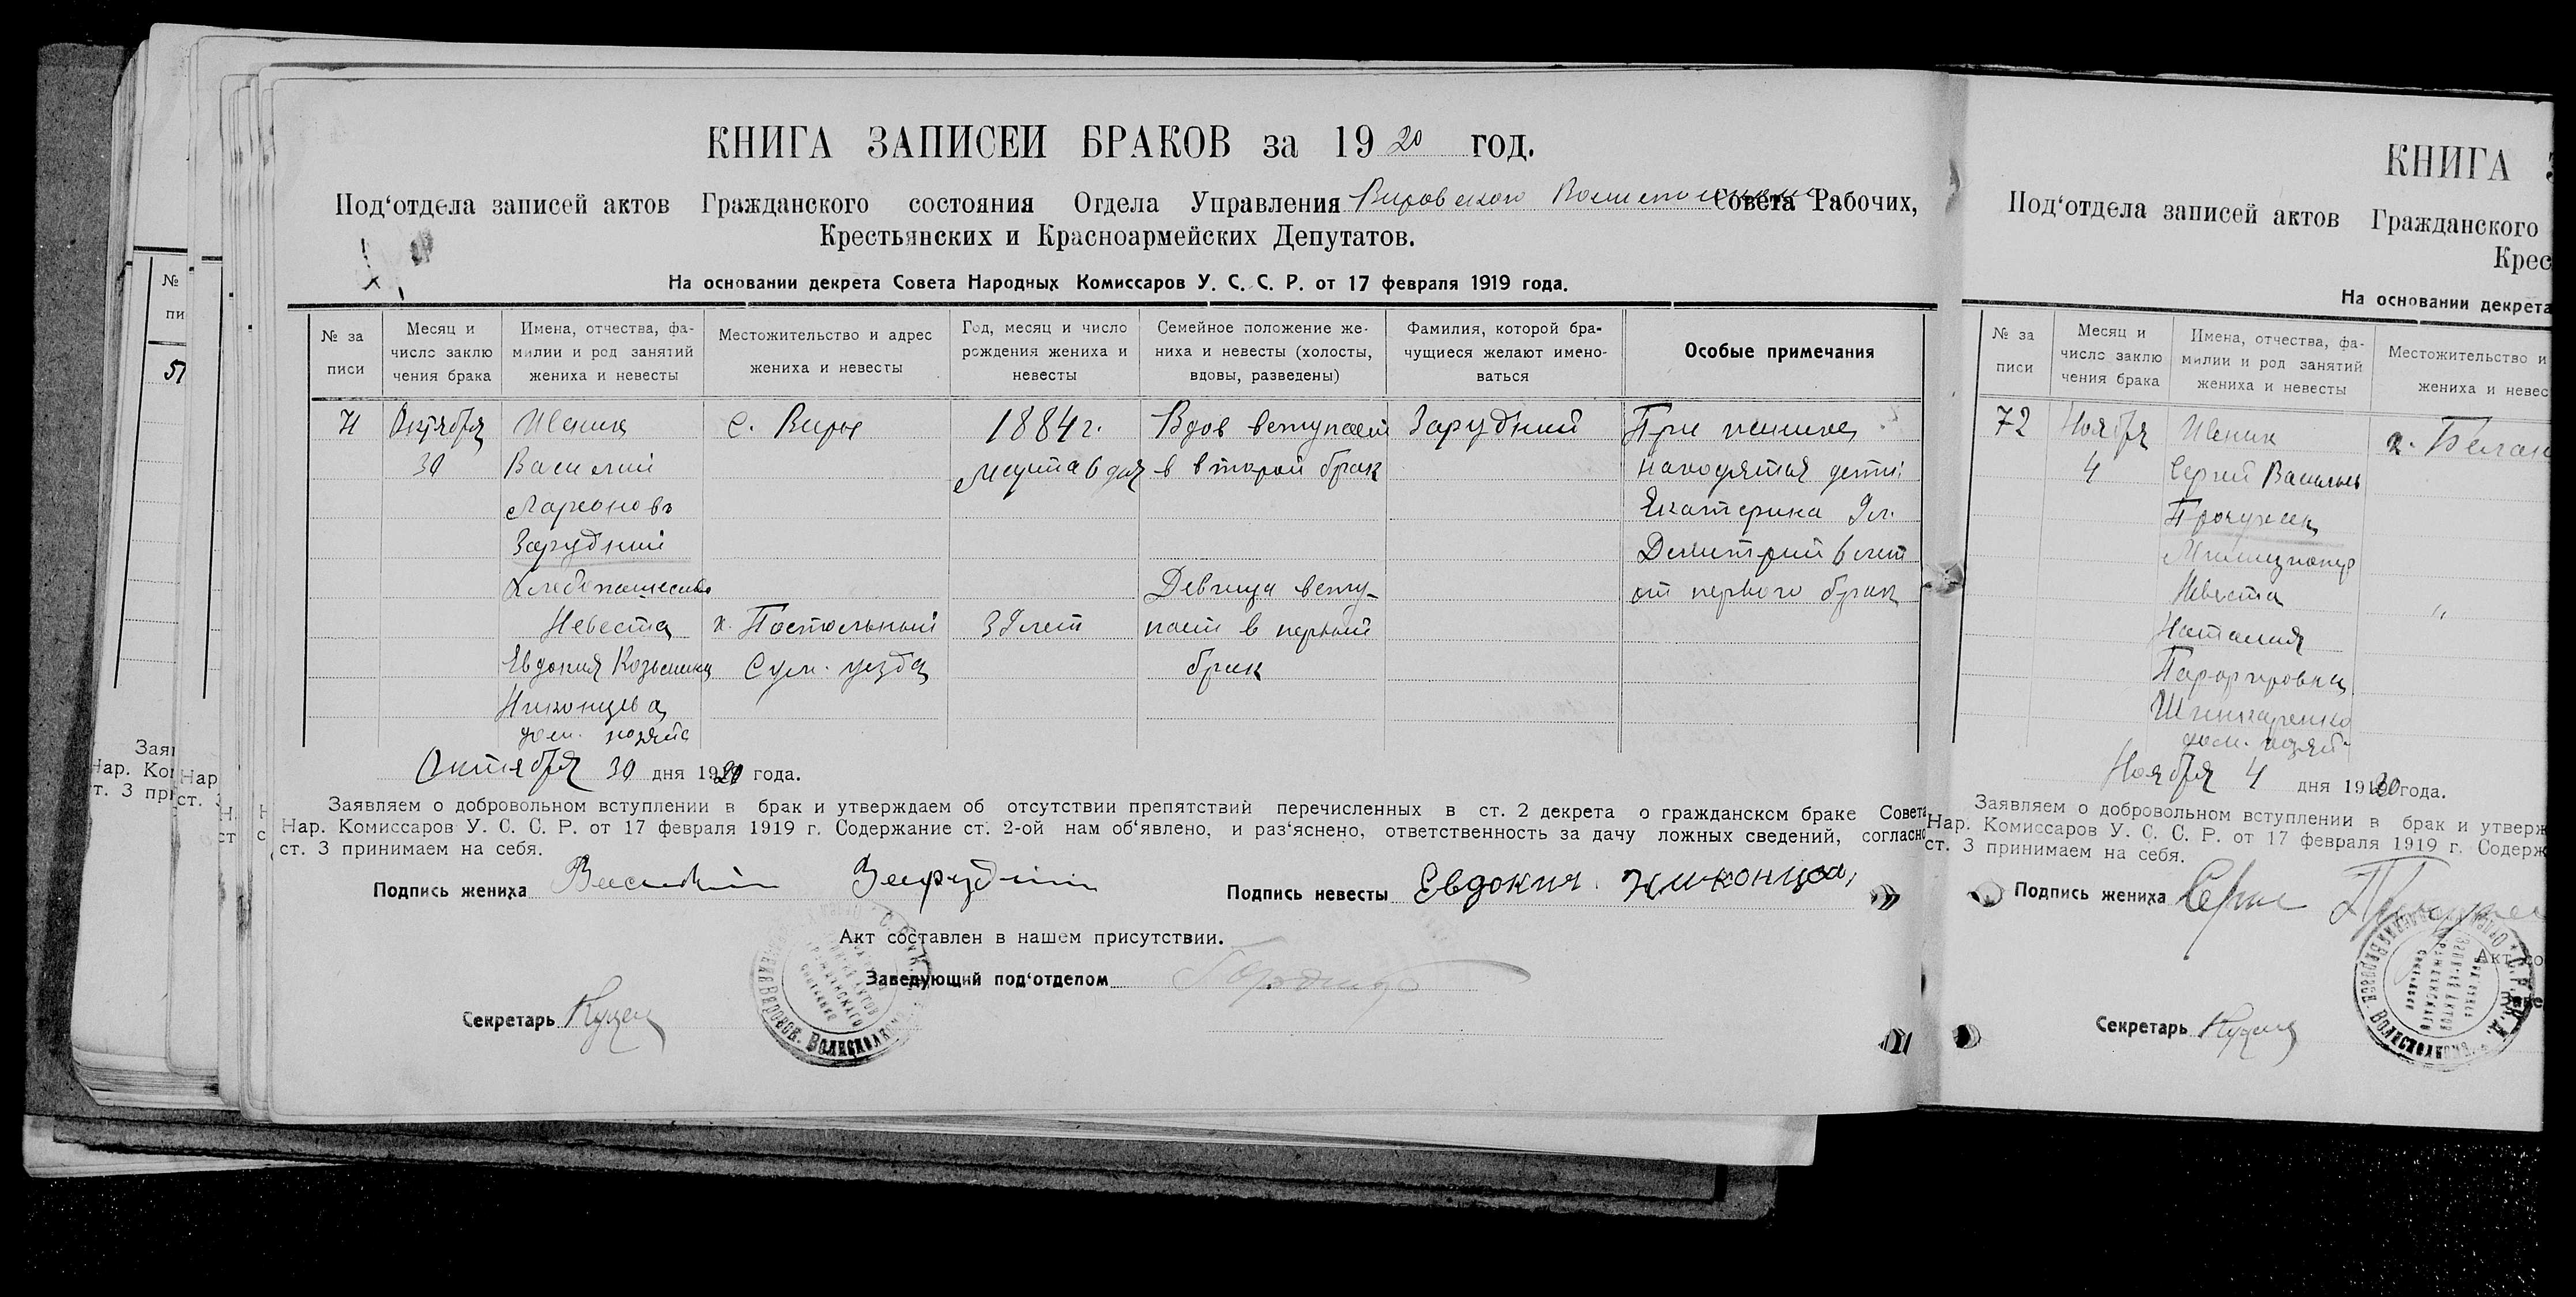 КНИГА ЗАПИСЕИ БРАКОВ за 1920 год.
Под'отдела записей актов Гражданского состояния Отдела Управления Вировского Совета Рабочих,
Крестьянских и Красноармейских Депутатов.
На основании декрета Совета Народных Комиссаров У. С. С. Р. от 17 февраля 1919 года.
№ за писи
Месяц и число заклю чения брака
Имена, отчества, фа- милии и род занятий жениха и невесты
Местожительство и адрес жениха и невесты
Год, месяц и число рождения жениха и невесты
Семейное положение же- ниха и невесты (холосты, вдовы, разведены)
Фамилия, которой бра- чущиеся желают имено- ваться
Особые примечания
71 Октября с. Виры 1884 г. Вдов вступает Зарудний При
30 Василий Марта 6 дня в второй брак находятся дети:
Екатерина 9 л.
Зарудний Димитрий 6 лет
Хлебопашество Девица всту- от первого брака
Невеста х. 39 лет пает в первый
Евдокия Козьмина Сум. уезда брак
Никонцева
дом. хозяйс
Октября 30 дня 1920 года.
Заявляем о добровольном вступлении в брак и утверждаем об отсутствии препятствий перечисленных в ст. 2 декрета о гражданском браке Совета
Нар. Комиссаров У. С. С. Р. от 17 февраля 1919 г. Содержание ст. 2-ой нам об'явлено, и раз'яснено, ответственность за дачу ложных сведений, согласно
ст. 3 принимаем на себя.
Подпись жениха Василий Зарудний Подпись невесты Евдокия Никонцова
Акт составлен в нашем присутствии.
Заведующий под'отделом
Секретарь
КНИГА
Под'отдела записей актов Гражданского
Крес
На основании декрета
№ за писи
Месяц и число заклю чения брака
Имена, отчества, фа- милии и род занятий жениха и невесты
Местожительство и жениха и невес
72 Ноября
4 Сергей Васильев
Милиционер
Невеста "
Наталия
Шинкаренко
дом. хозяй.
Ноября 4 дня 1920 года.
Заявляем о добровольном вступлении в брак и утверж
Нар. Комиссаров У. С. С. Р. от 17 февраля 1919 г. Содерж
ст. 3 принимаем на себя.
Подпись жениха
Акт со
Заве
Секретарь
№
пи
51
Заяв
Нар. Ко
ст. 3 пр